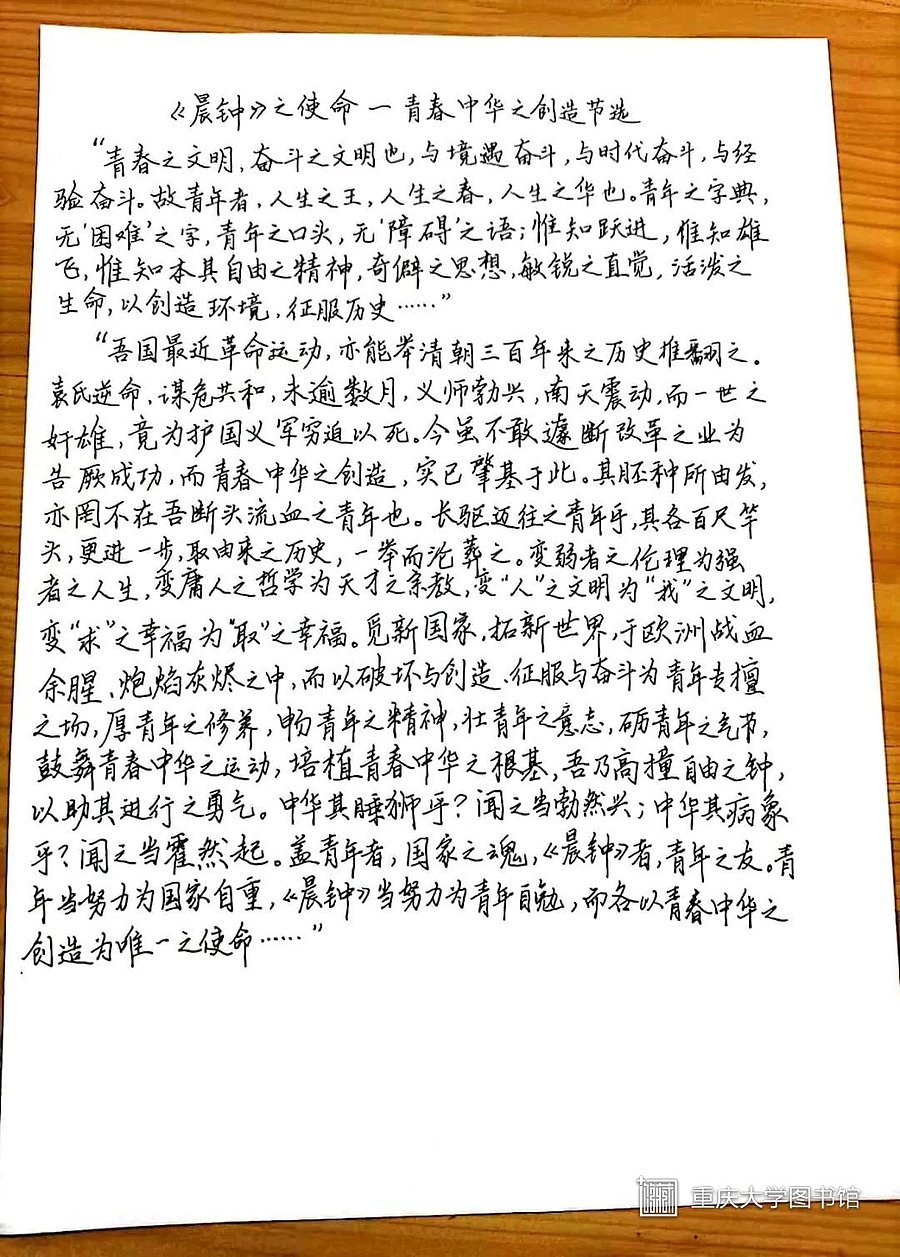 《晨钟》之使命一青春中华之创造节选
“青春之文明,奋斗之文明也,与境遇奋斗,与时代奋斗,与经
验奋斗。故青年者,人生之王,人生之春,人生之华也。青年之字典,
无‘困难’之字,青年之口头,无‘障碍’之语;惟知跃进,惟知雄
飞,惟知本其自由之精神,奇僻之思想,敏锐之直觉,活泼之
生命,以创造环境,征服历史……”
“吾国最近革命运动,亦能举清朝三百年来之历史推翻之。
袁氏逆命,谋危共和,未逾数月,义师勃兴,南天震动,而一世之
奸雄,竟为护国义军穷迫以死。今虽不敢遽断改革之业为
告厥成功,而青春中华之创造,实已肇基于此。其胚种所由发,
亦罔不在吾断头流血之青年也。长驱迈往之青年乎,其各百尺竿
头,更进一步,取由来之历史,一举而沦葬之。变弱者之伦理为强
者之人生,变庸人之哲学为天才之宗教,变“人”之文明为“我”之文明,
变“求”之幸福为“取”之幸福。觅新国家,拓新世界,于欧洲战血
余腥、炮焰灰烬之中,而以破坏与创造、征服与奋斗为青年专擅
之场,厚青年之修养,畅青年之精神,壮青年之意志,砺青年之气节,
鼓舞青春中华之运动,培植青春中华之根基,吾乃高撞自由之钟,
以助其进行之勇气。中华其睡狮乎?闻之当勃然兴;中华其病象
乎?闻之当霍然起。盖青年者,国家之魂,《晨钟》者,青年之友。青
年当努力为国家自重,《晨钟》当努力为青年自勉,而各以青春中华之
创造为唯一之使命……”
重庆大学图书馆